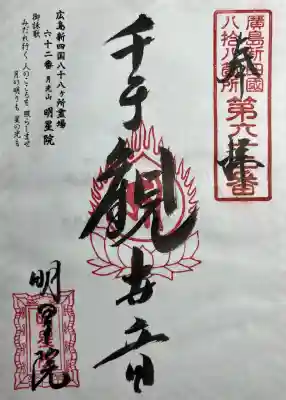 奉拝
廣島新四國
八拾八個所
第六十二番
千手観世音
明星院
広島新四国八十八ヶ所霊場
六十二番 月光山 明星院
御詠歌
みだれ行く 人のこころを 照らしませ
月の明りも 星の光も